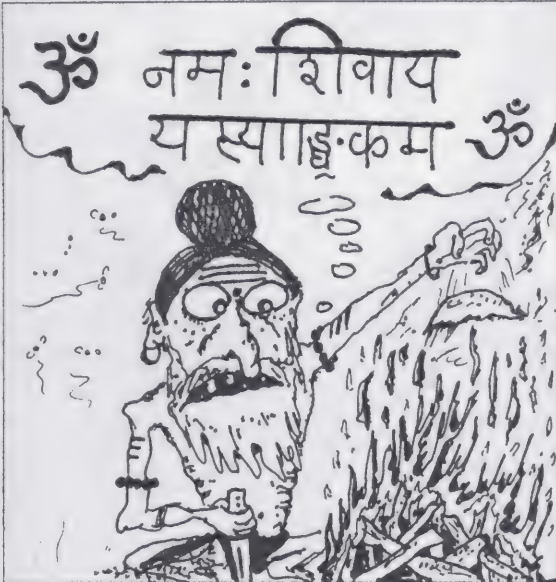 ॐ नमः शिवाय
यस्याङ्कम ॐ